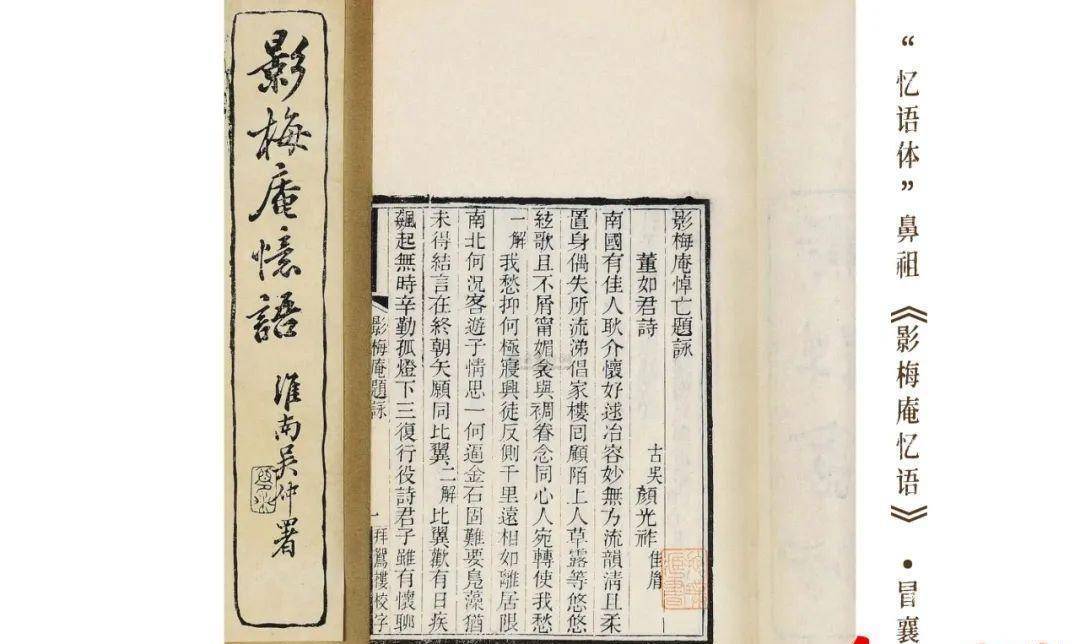 “忆语体”鼻祖《影梅庵忆语》•冒襄
影梅庵悼亡題詠
董如君詩
古吳 顏光祚 佳胤
南國有佳人耿介懷好逑冶容妙無方流韻清且柔
置身偶失所流涕倡家樓回顧陌上人草露等悠悠
絃歌且不屑甯媚衾與裯眷念同心人宛轉使我愁
一解 我愁抑何極寢興徒反側千里遠相如離居限
南北何況客遊子情思一何逼金石固難要鳧藻猶
未得結言在終朝矢願同比翼二解 比翼歡有日疾
飆起無時辛勤孤燈下三復行役詩君子雖有懷聊
影梅庵題詠 一 拜鴛樓校字
影梅庵憶語
淮南吳仲署